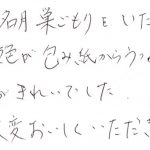 名月巣ごもりをいた
色が包み紙からうつ
がきれいでした.
変おいしくいただき